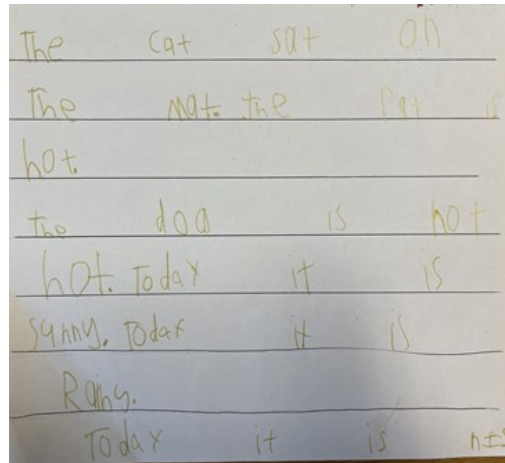 The cat sat on
The mat. the Pat is
hot.
the dog is not
hot. Today it is
sunny. Today it is
Rainy.
Today it is